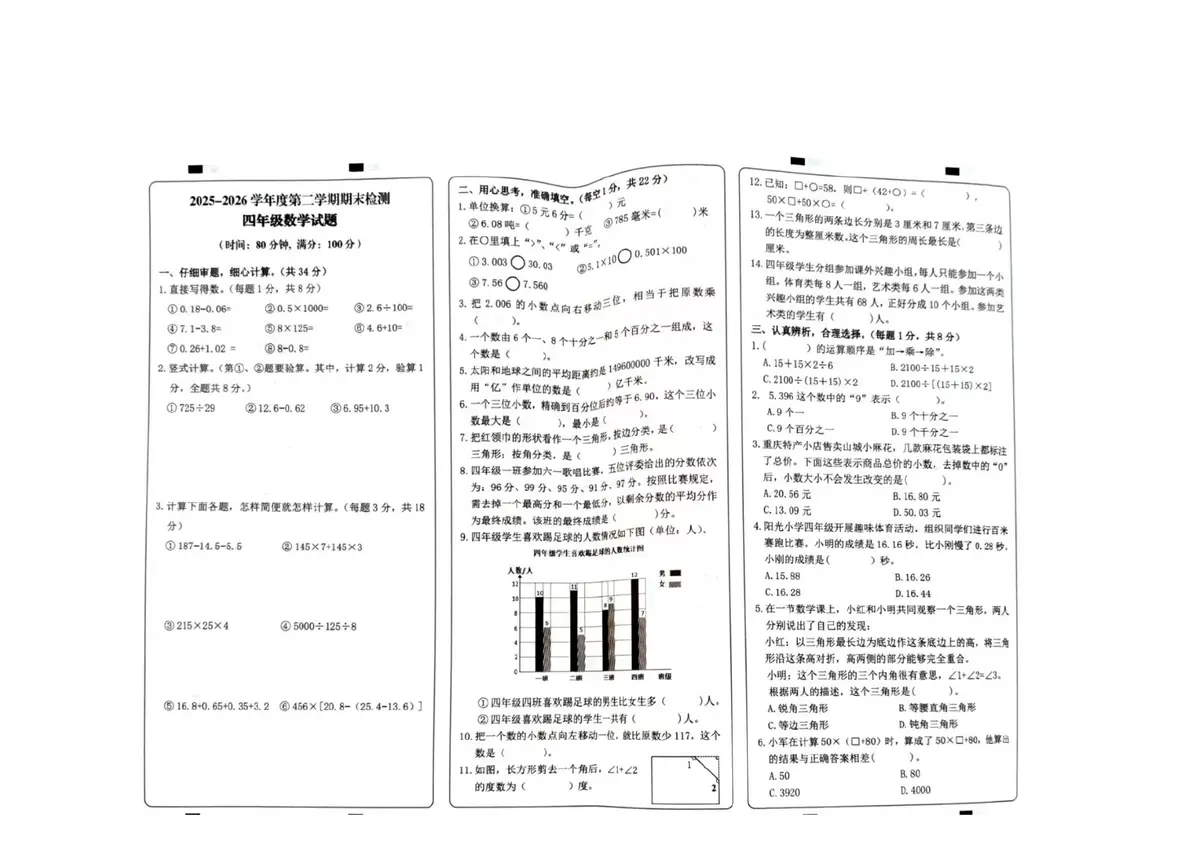 2025-2026 学年度第二学期期末检测
四年级数学试题
(时间: 80 分钟, 满分: 100 分)
一、仔细审题, 细心计算。(共 34 分)
1. 直接写得数。(每题 1 分, 共 8 分)
① 0.18-0.06= ② 0.5×1000= ③ 2.6÷100=
④ 7.1-3.8= ⑤ 8×125= ⑥ 4.6+10=
⑦ 0.26+1.02 = ⑧ 8-0.8=
2. 竖式计算。(第①、②题要验算。其中, 计算 2 分, 验算 1
分, 全题共 8 分。)
① 725÷29 ② 12.6-0.62 ③ 6.95+10.3
3. 计算下面各题, 怎样简便就怎样计算。(每题 3 分, 共 18
分)
① 187-14.5-5.5 ② 145×7+145×3
③ 215×25×4 ④ 5000÷125÷8
⑤ 16.8+0.65+0.35+3.2 ⑥ 456×[20.8-(25.4-13.6)]
二、用心思考, 准确填空。(每空 1 分, 共 22 分)
1. 单位换算: ①5 元 6 分=( )元
②6.08 吨=( )千克 ③785 毫米=( )米
2. 在○里填上“>”、“<”或“=”。
① 3.003 ○ 30.03 ②5.1×10 ○ 0.501×100
③ 7.56 ○ 7.560
3. 把 2.006 的小数点向右移动三位, 相当于把原数乘
( )。
4. 一个数由 6 个一、8 个十分之一和 5 个百分之一组成, 这
个数是( )。
5. 太阳和地球之间的平均距离约是 149600000 千米, 改写成
用“亿”作单位的数是( )亿千米。
6. 一个三位小数, 精确到百分位后约等于 6.90, 这个三位小
数最大是( ), 最小是( )。
7. 把红领巾的形状看作一个三角形, 按边分类, 是( )
三角形; 按角分类, 是( )三角形。
8. 四年级一班参加六一歌唱比赛, 五位评委给出的分数依次
为: 96 分、99 分、95 分、91 分、97 分。按照比赛规定,
需去掉一个最高分和一个最低分, 以剩余分数的平均分作
为最终成绩。该班的最终成绩是( )分。
9. 四年级学生喜欢踢足球的人数情况如下图(单位: 人)。
四年级学生喜欢踢足球的人数统计图
人数/人
男
女
12
10
8
6
4
2
0
10 6 11 5 8 9 12 7
一班 二班 三班 四班 班级
① 四年级四班喜欢踢足球的男生比女生多( )人。
② 四年级喜欢踢足球的学生一共有( )人。
10. 把一个数的小数点向左移动一位, 就比原数少 117, 这个
数是( )。
11. 如图, 长方形剪去一个角后, ∠1+∠2
的度数为( )度。
1
2
12. 已知: □+○=58, 则□+(42+○)=( ),
50×□+50×○=( )。
13. 一个三角形的两条边长分别是 3 厘米和 7 厘米, 第三条边
的长度为整厘米数。这个三角形的周长最长是( )
厘米。
14. 四年级学生分组参加课外兴趣小组, 每人只能参加一个小
组。体育类每 8 人一组, 艺术类每 6 人一组。参加这两类
兴趣小组的学生共有 68 人, 正好分成 10 个小组。参加艺
术类的学生有( )人。
三、认真辨析, 合理选择。(每题 1 分, 共 8 分)
1. ( )的运算顺序是“加→乘→除”。
A. 15+15×2÷6 B. 2100÷15+15×2
C. 2100÷(15+15)×2 D. 2100÷[(15+15)×2]
2. 5.396 这个数中的“9”表示( )。
A. 9 个一 B. 9 个十分之一
C. 9 个百分之一 D. 9 个千分之一
3. 重庆特产小店售卖山城小麻花, 几款麻花包装袋上都标注
了总价。下面这些表示商品总价的小数, 去掉数中的“0”
后, 小数大小不会发生改变的是( )。
A. 20.56 元 B. 16.80 元
C. 13.09 元 D. 50.03 元
4. 阳光小学四年级开展趣味体育活动, 组织同学们进行百米
赛跑比赛。小明的成绩是 16.16 秒, 比小刚慢了 0.28 秒,
小刚的成绩是( )秒。
A. 15.88 B. 16.26
C. 16.28 D. 16.44
5. 在一节数学课上, 小红和小明共同观察一个三角形, 两人
分别说出了自己的发现:
小红: 以三角形最长边为底边作这条底边上的高, 将三角
形沿这条高对折, 高两侧的部分能够完全重合。
小明: 这个三角形的三个内角很有意思, ∠1+∠2=∠3。
根据两人的描述, 这个三角形是( )。
A. 锐角三角形 B. 等腰直角三角形
C. 等边三角形 D. 钝角三角形
6. 小军在计算 50×(□+80)时, 算成了 50×□+80, 他算出
的结果与正确答案相差( )。
A. 50 B. 80
C. 3920 D. 4000